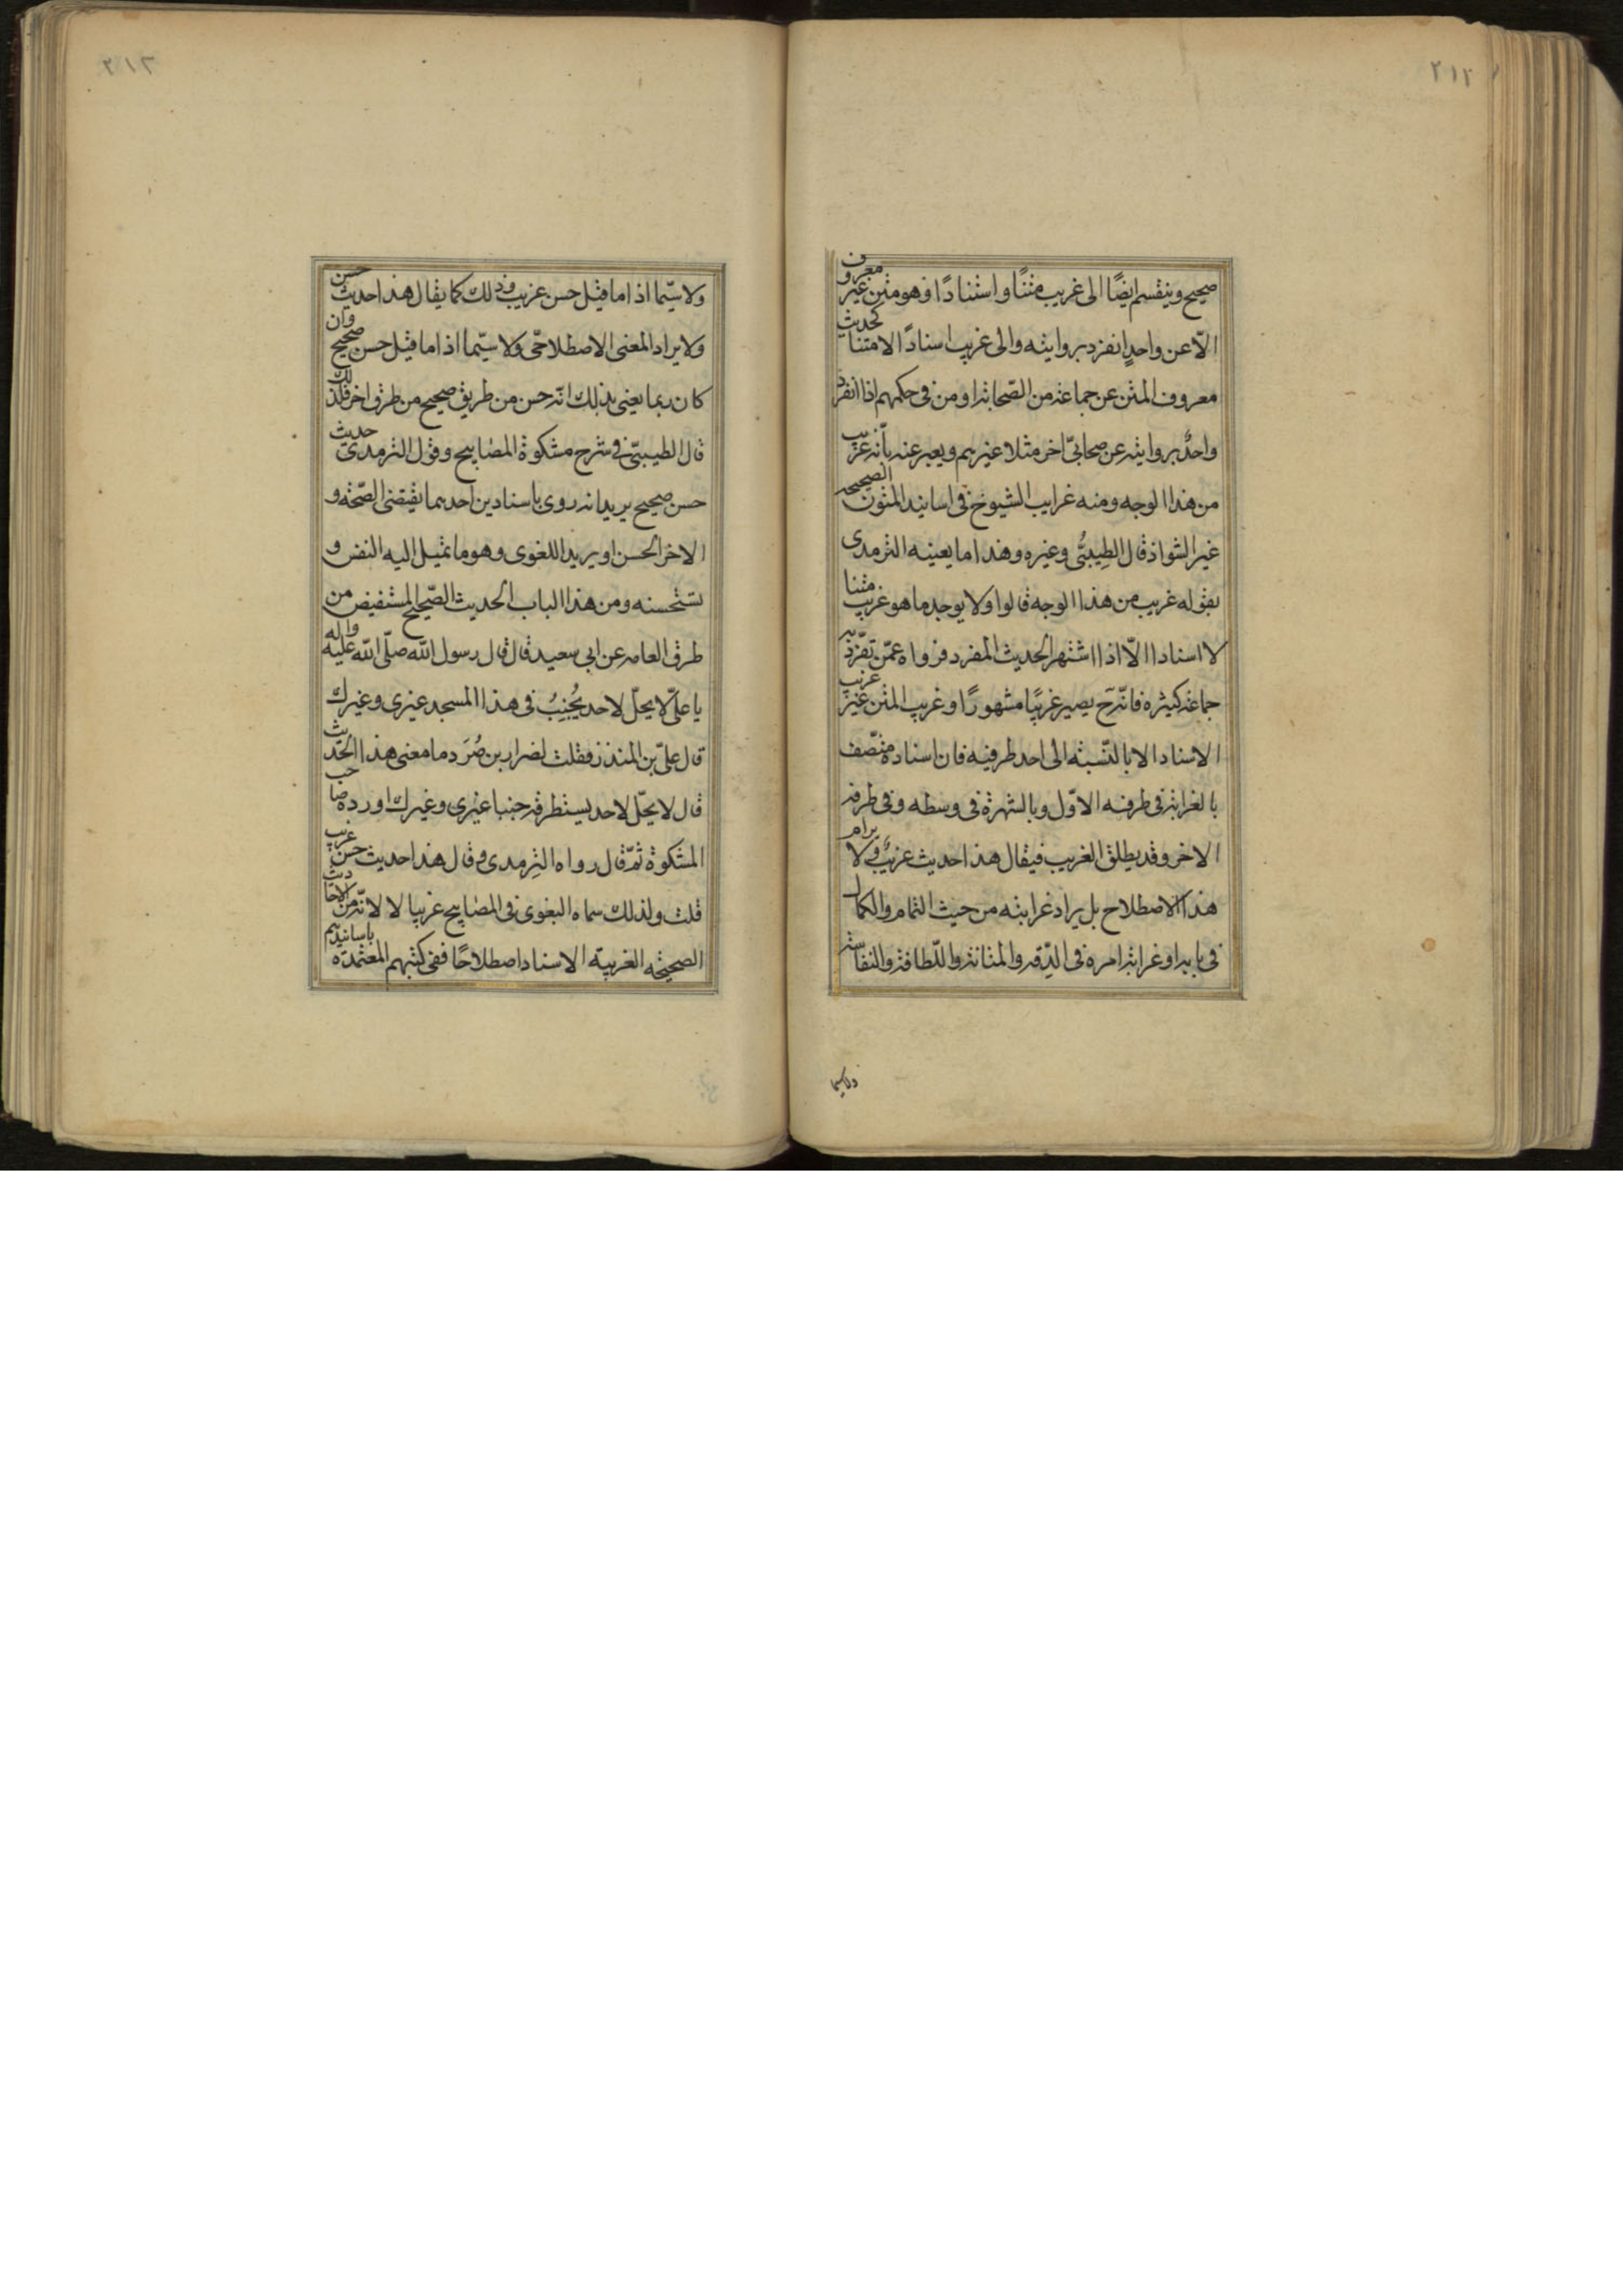 ٢١٢
صحيح وينقسم ايضًا الى غريب متنًا واسنادًا وهو متن غير معروف
الّا عن واحدٍ انفرد بروايته والى غريب اسنادًا لا متنا كحديث
معروف المتن عن جماعة من الصّحابة او من فى حكمهم اذا انفرد
واحدٌ بروايته عن صحابىّ اخر مثلا غيرهم ويعبر عنه بأنه غريب
من هذا الوجه ومنه غرايب الشيوخ فى اسانيد المتون الصحيحه
غير الشواذ قال الطِيبىُّ وغيره وهذا ما يعينه الترمدى
بقوله غريب من هذا الوجه قالوا ولا يوجد ما هو غريب متنا
لا اسنادا الّا اذا اشتهر الحديث المفرد فرواه عمّن تفرّد به
جماعة كثيره فانّه ح يصير غريبًا مشهورًا وغريب المتن غير غريب
الاسناد الا بالنّسبة الى احد طرفيه فان اسناده متّصف
بالغرابة فى طرفه الاوّل وبالشهرة فى وسطه وفى طرفه
الاخر وقد يطلق الغريب فيقال هذا حديث غريبٌ ولا يرام
هذا الاصطلاح بل يراد غرابته من حيث التمام والكمال
فى بابه او غرابة امره فى الدّقه والمتانة واللّطافة والنفاسة
ولاسيما
٢١٣
ولا سيّما اذا ما قيل حسن غريب وذلك كما يقال هذا حديث حسن
ولا يراد المعنى الاصطلاحّى ولا سيّما اذا ما قيل حسن صحيح وان
كان ربما يعنى بذلك انّه حسن من طريق صحيح من طرق اخر فلذلك
قال الطيبىّ فى شرح مشكوة المصابيح وقول الترمدى حديث
حسن صحيح يريد انه روى باسنادين احدهما يقتضى الصّحّة و
الاخر الحسن او يريد اللغوى وهو ما تميل اليه النفس و
تستحسنه ومن هذا الباب الحديث الصّحيح المستفيض من
طرق العامه عن ابى سعيد قال قال رسول الله صلّى الله عليه واله
يا علىّ لا يحلّ لاحد يُجنِبُ فى هذا المسجد غيرى وغيرك
قال علىّ بن المنذر فقلت لضرار بن صُرَد ما معنى هذا الحديث
قال لا يحلّ لاحد يستطرقه جنبا غيرى وغيرك اورده صاحب
المشكوة ثمّ قال رواه الترمدى وقال هذا حديث حسن غريب
قلت ولذلك سماه البغوى فى المصابيح غريبا لا لانّه من الاحاديث
الصحيحه الغريبة الاسناد اصطلاحًا ففى كتبهم المعتمدة باسانيدهم